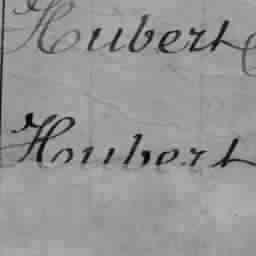 Hubert
Houbert